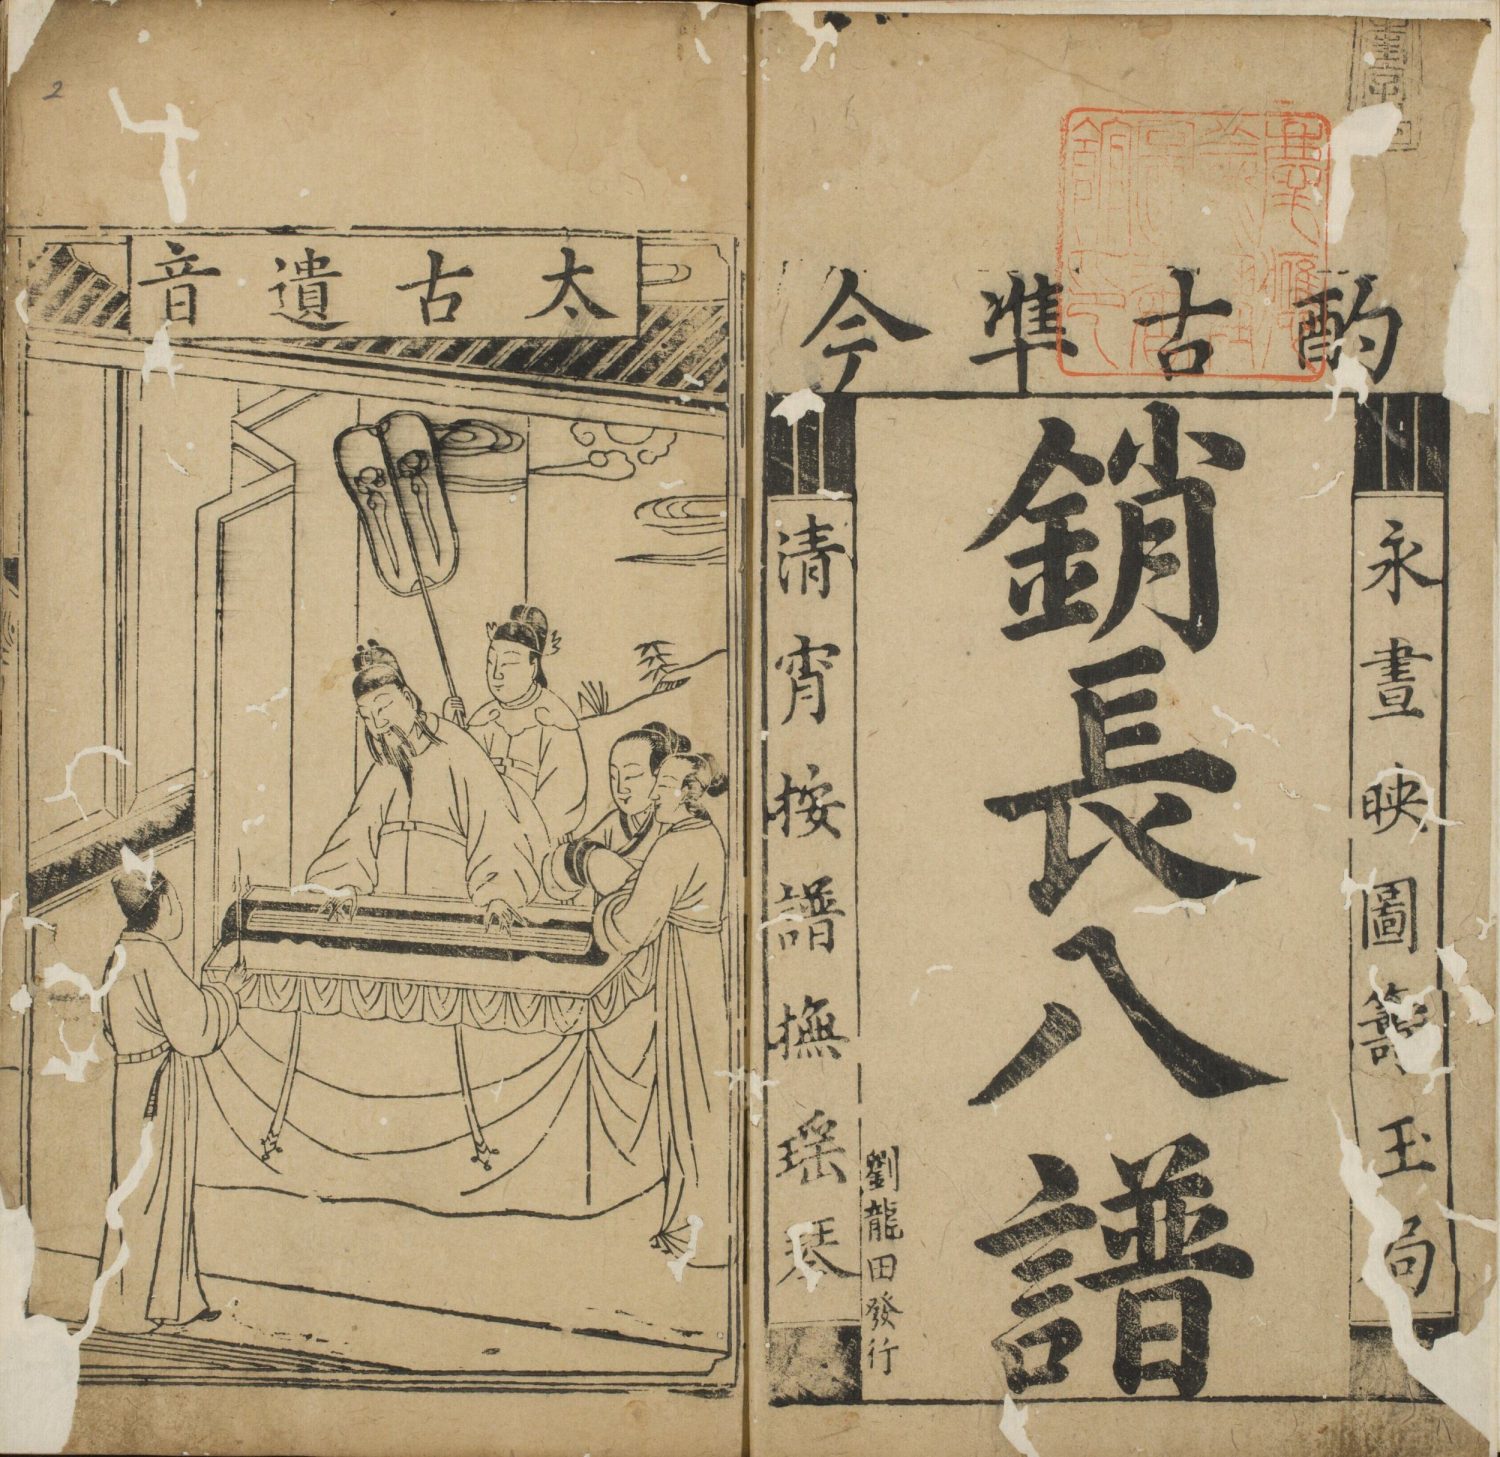 酌古準今
永晝映圖籌玉局
銷長八譜
清宵按譜撫瑶琴
劉龍田發行
太古遺音
2